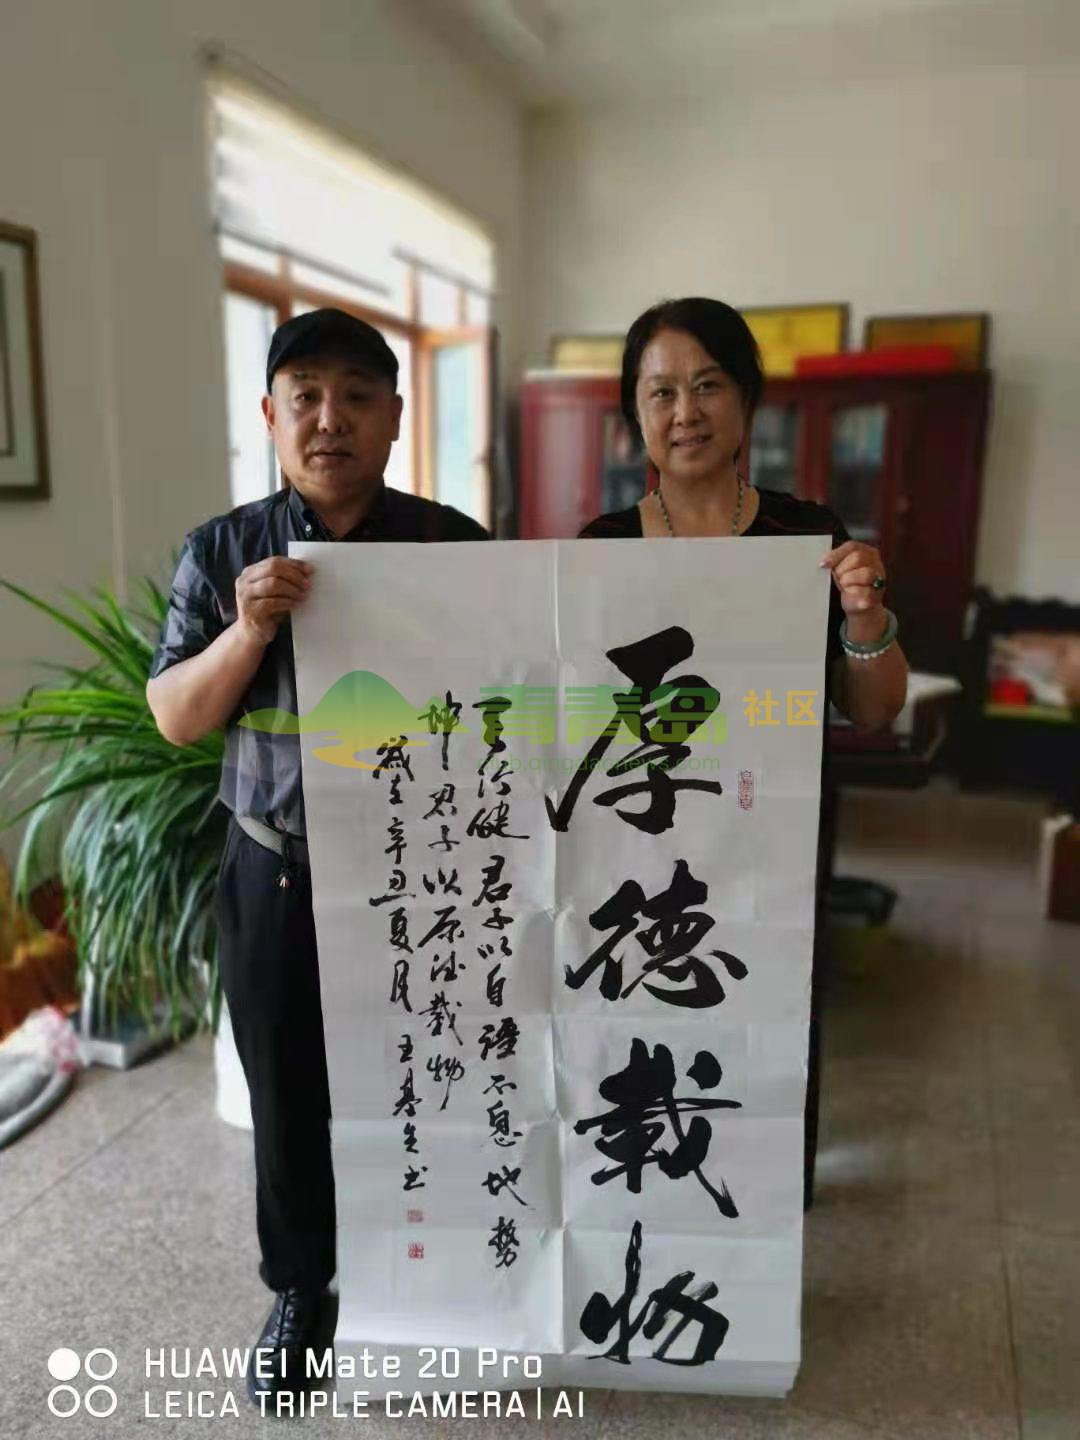 厚德載物
天行健君子以自彊不息地勢
坤君子以厚德載物
歲在辛丑夏月王基书
青青岛社区
club.qingdaonews.com
HUAWEI Mate 20 Pro
LEICA TRIPLE CAMERA | AI